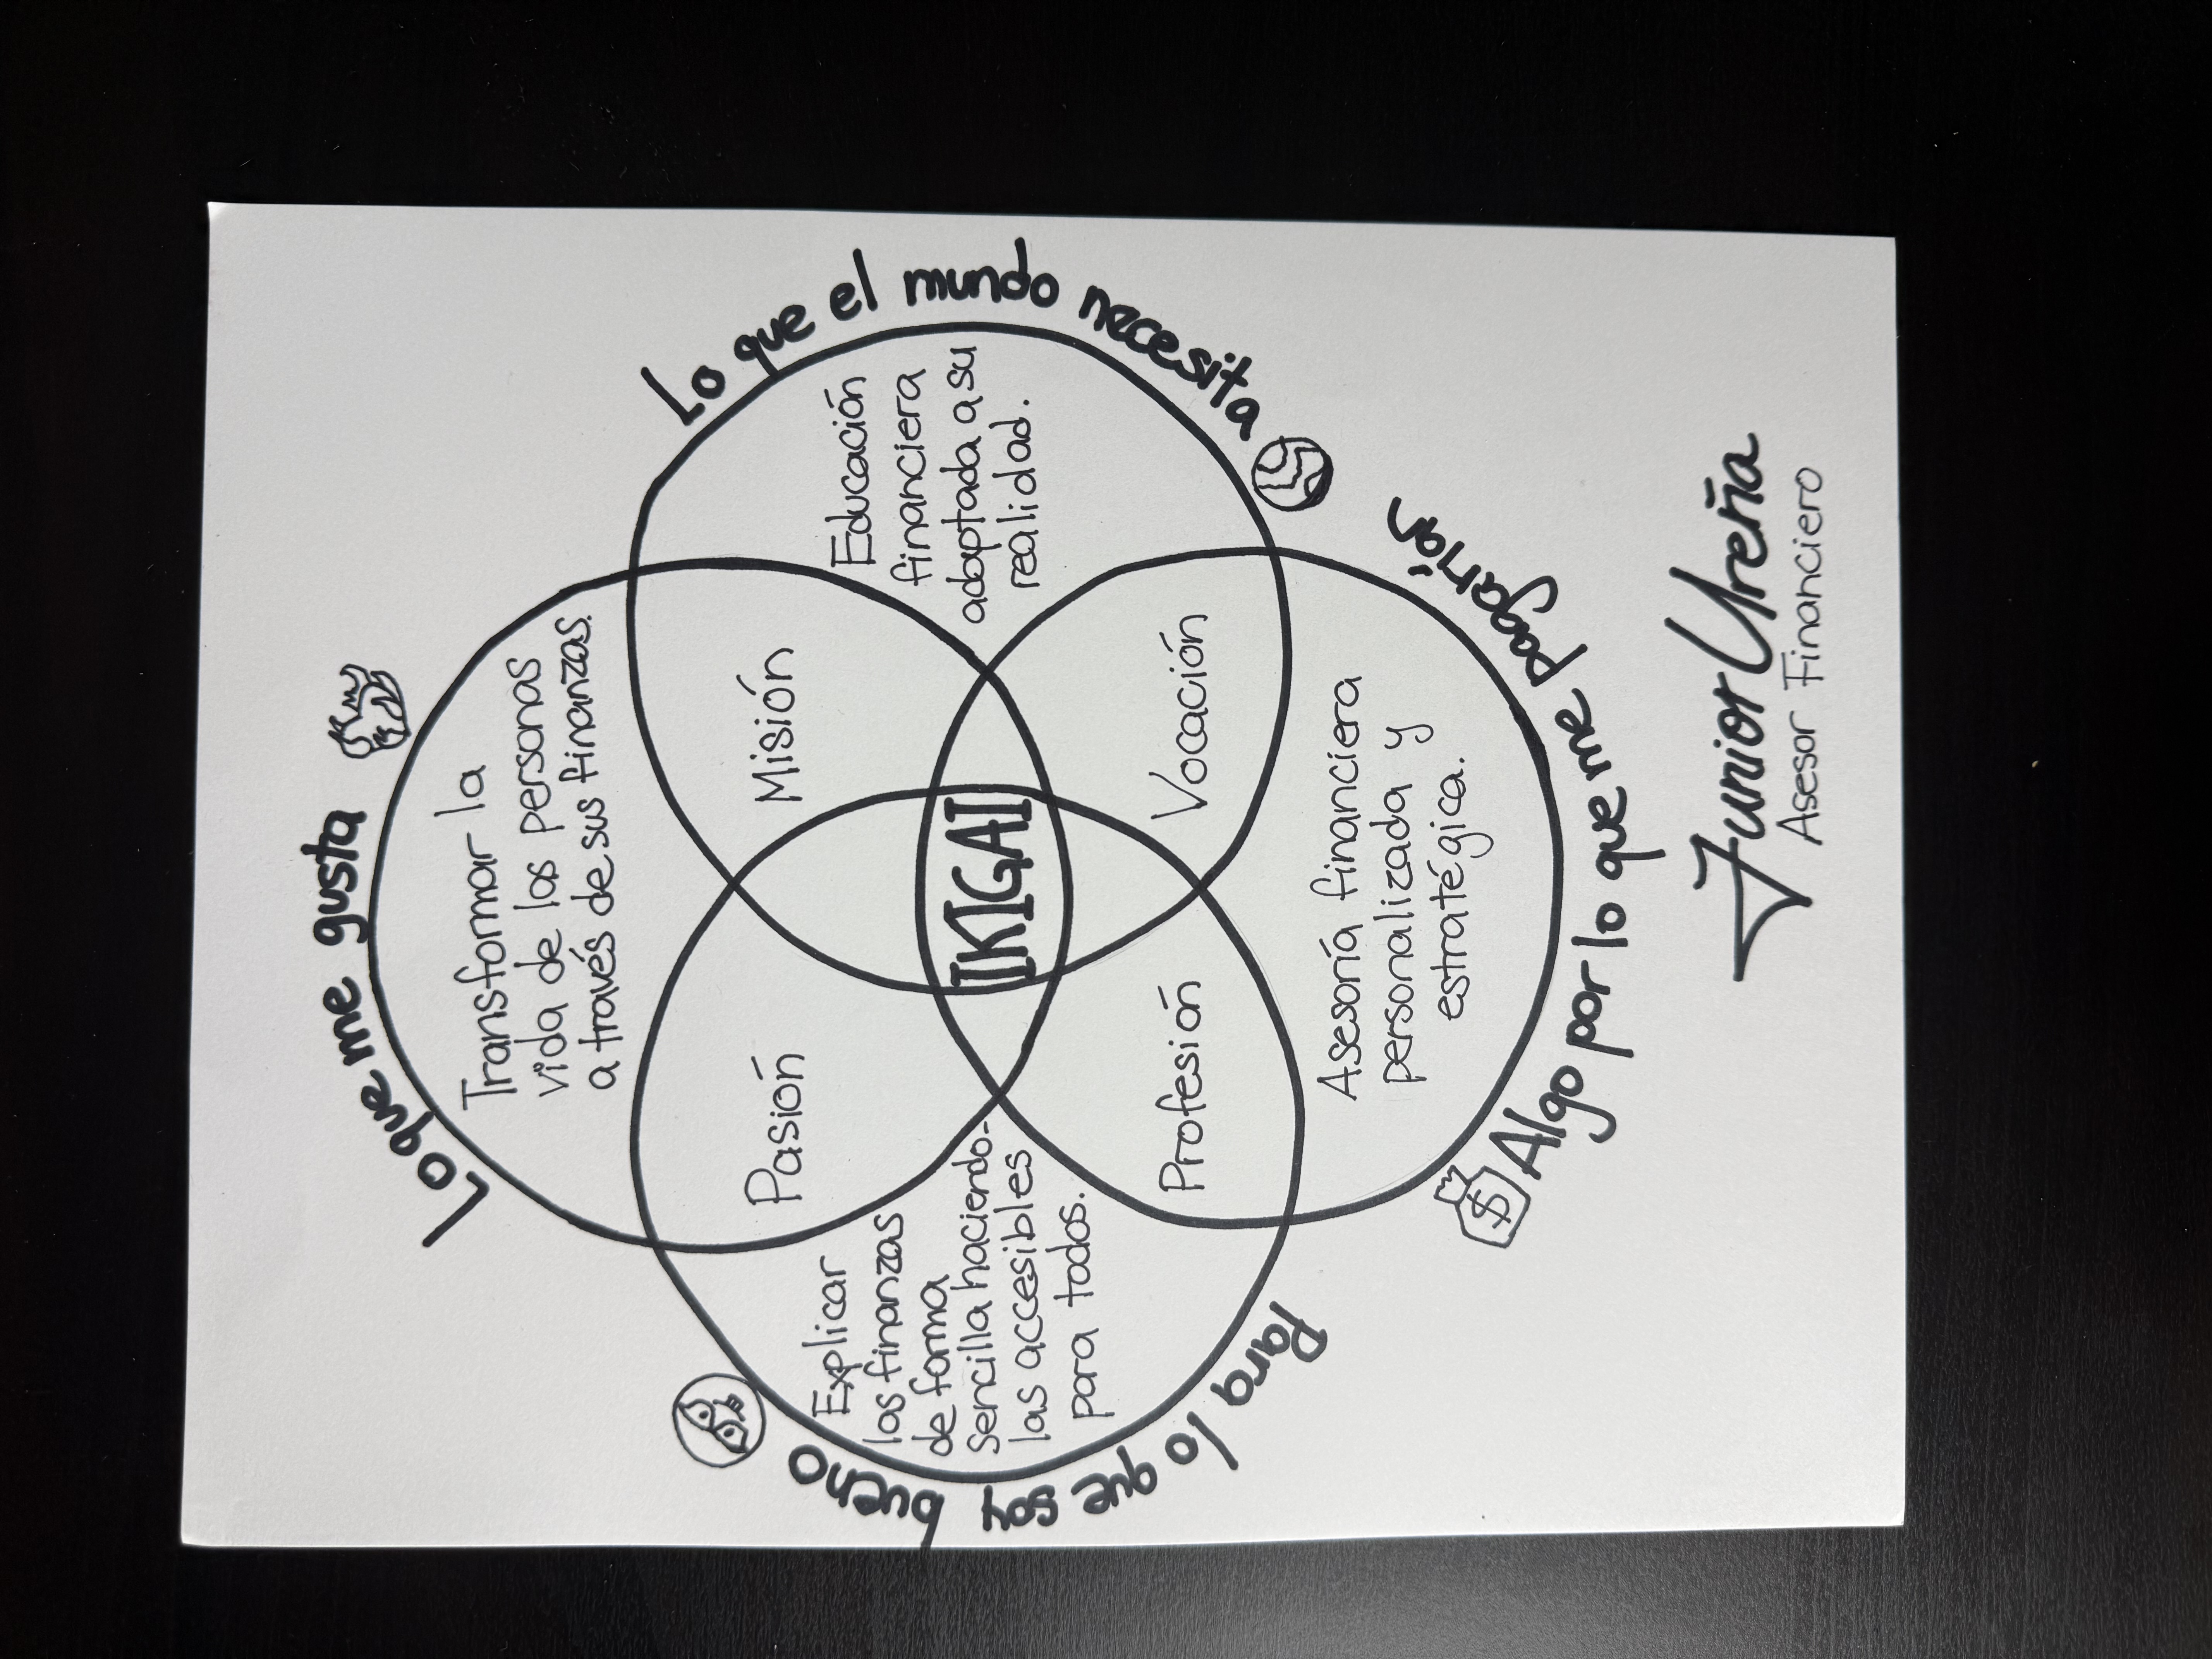 Lo que me gusta
Transformar la
vida de las personas
a través de sus finanzas.
Pasión
Misión
Lo que el mundo necesita
Educación
financiera
adaptada a su
realidad.
Para lo que soy bueno
Explicar
las finanzas
de forma
sencilla haciendo-
las accesibles
para todos.
IKIGAI
Profesión
Vocación
Asesoría financiera
personalizada y
estratégica.
$
Algo por lo que me pagarían
Junior Ureña
Asesor Financiero